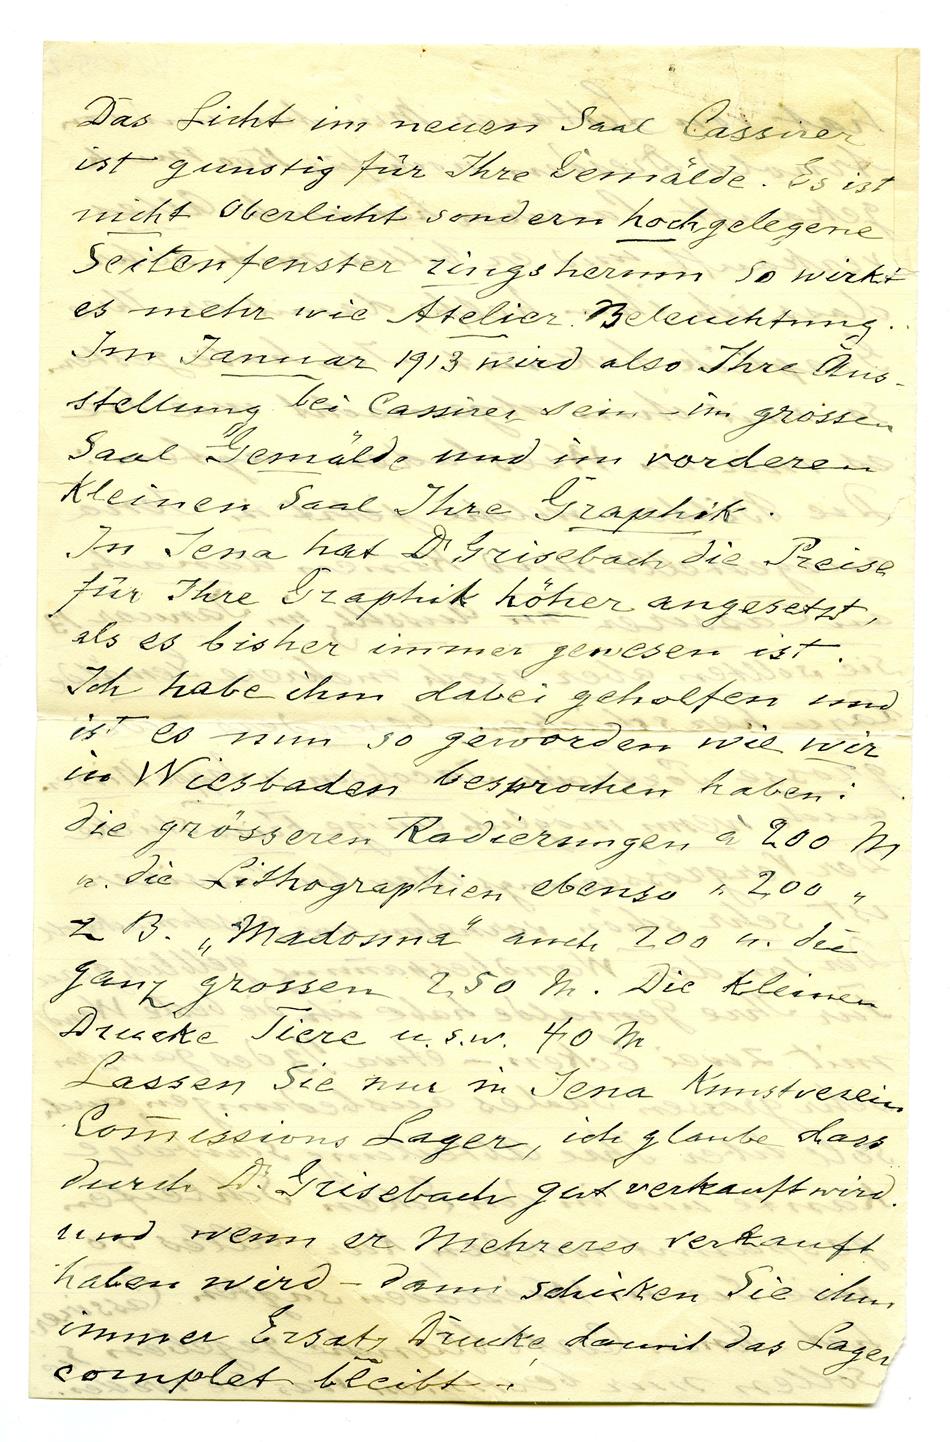 Das Licht im neuen Saal Cassirer
ist gunstig für Ihre Gemälde. Es ist
nicht Oberlicht sondern hochgelegene
Seitenfenster ringsherum so wirkt
es mehr wie Atelier Beleuchtung.
Im Januar 1913 wird also Ihre Aus-
stellung bei Cassirer sein – im grossen
Saal Gemälde und im vorderen
kleinen Saal Ihre Graphik.
In Jena hat Dr Grisebach die Preise
für Ihre Graphik höher angesetzt,
als es bisher immer gewesen ist.
Ich habe ihm dabei geholfen und
ist es nun so geworden wie wir
in Wiesbaden besprochen haben:
die grösseren Radierungen à 200 M
u. die Lithographien ebenso " 200 "
z B. „Madonna" auch 200 u. die
ganz grossen 250 M. Die kleinen
Drucke Tiere u.s.w. 40 M
Lassen Sie nur in Jena Kunstverein
Com̄issions Lager, ich glaube dass
durch Dr. Grisebach gut verkauft wird.
und wenn er Mehreres verkauft
haben wird – dann schicken Sie ihm
immer Ersatz Drucke, damit das Lager
complet bleibt.